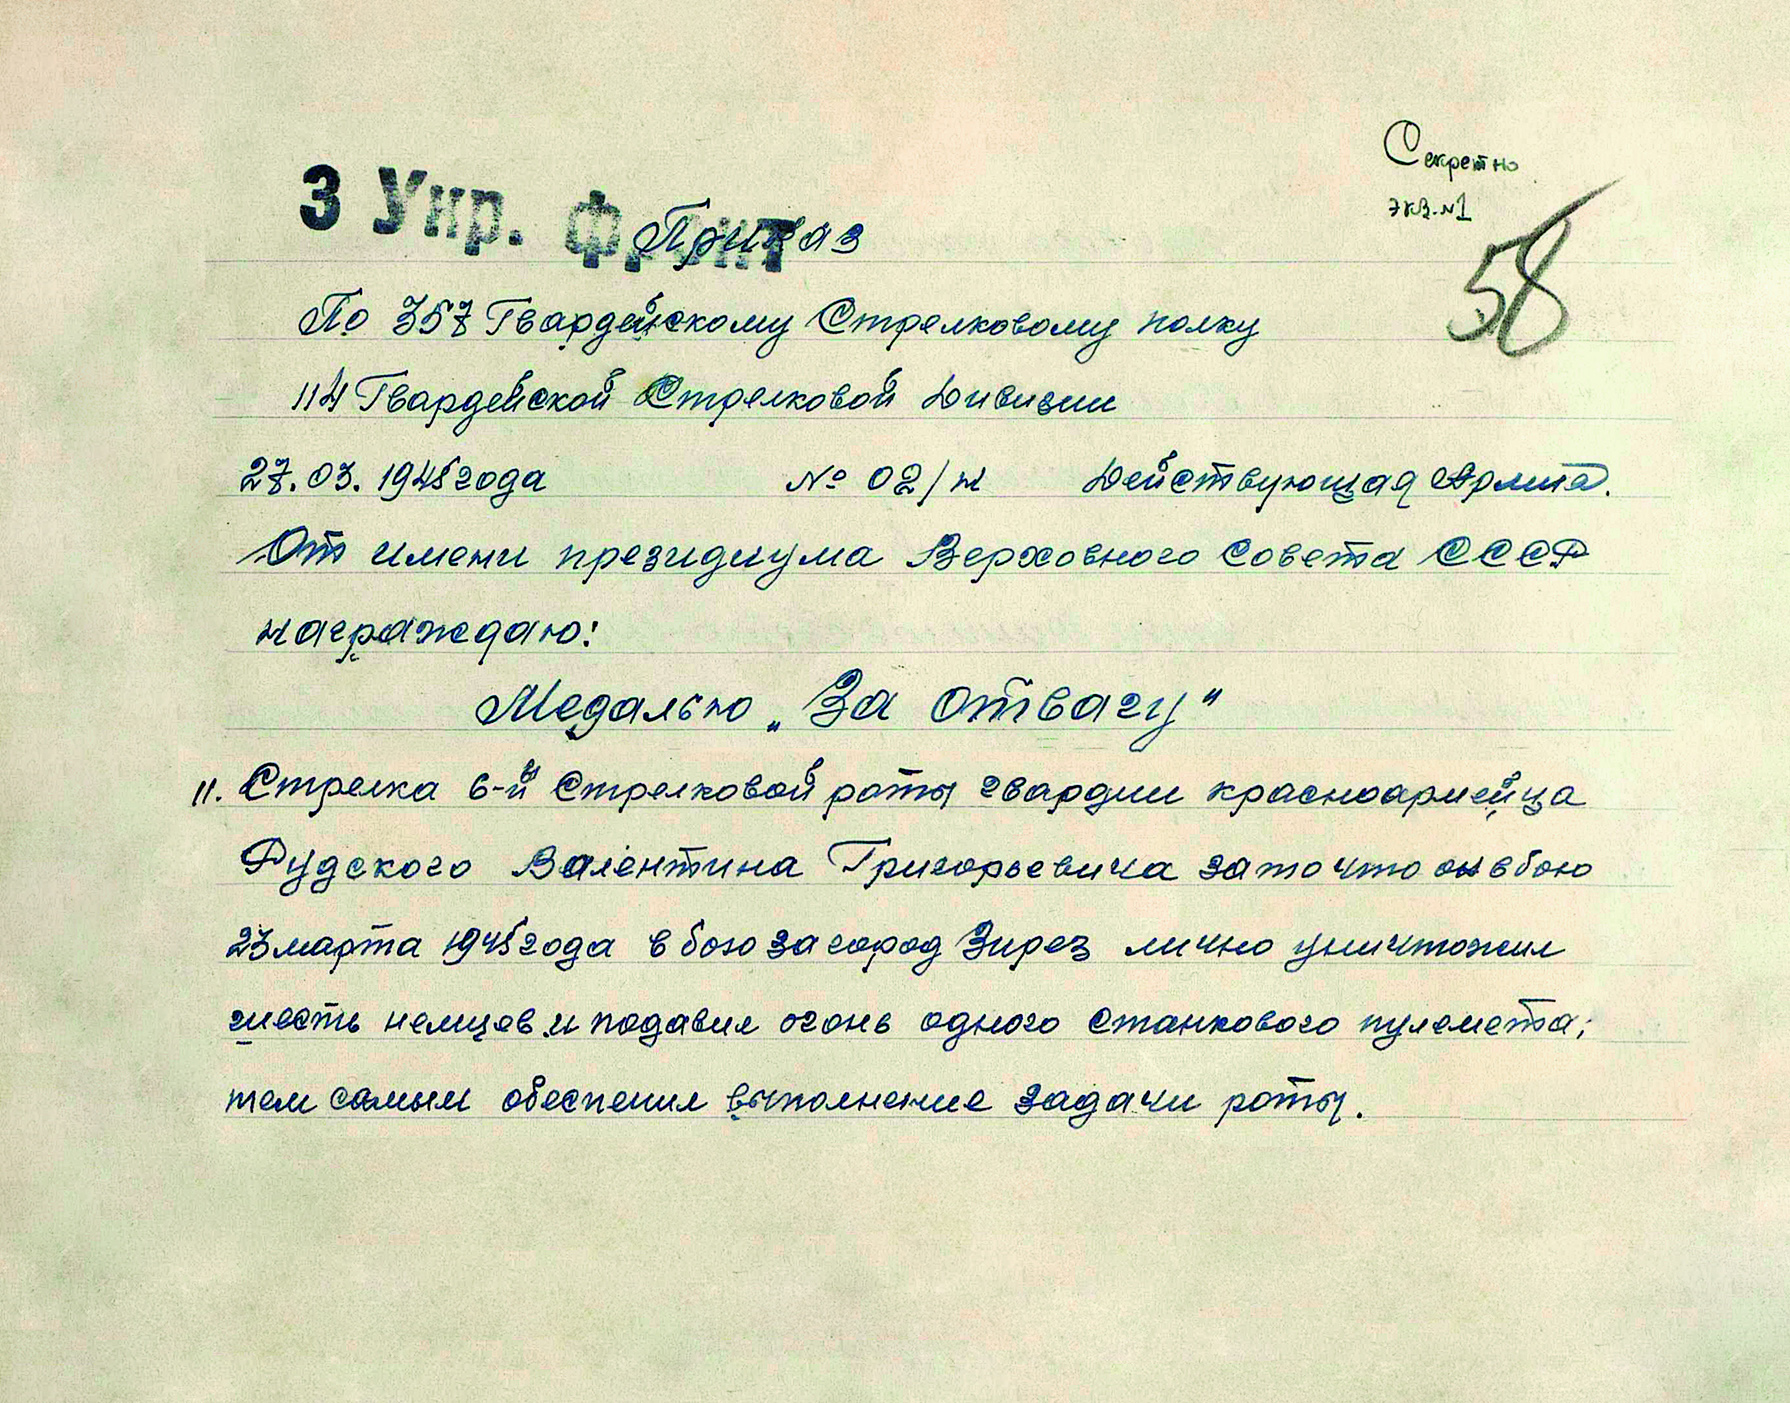 Секретно
экз. №1
58
3 Укр. фронт
Приказ
По 357 Гвардейскому Стрелковому полку
114 Гвардейской Стрелковой Дивизии
27.03.1945 года № 02/н Действующая Армия.
От имени президиума Верховного Совета СССР
награждаю:
Медалью „За отвагу"
11. Стрелка 6-й Стрелковой роты гвардии красноармейца
Рудского Валентина Григорьевича за то что он в бою
23 марта 1945 года в бою за город Зирез лично уничтожил
шесть немцев и подавил огонь одного станкового пулемета;
тем самым обеспечил выполнение задачи роты.